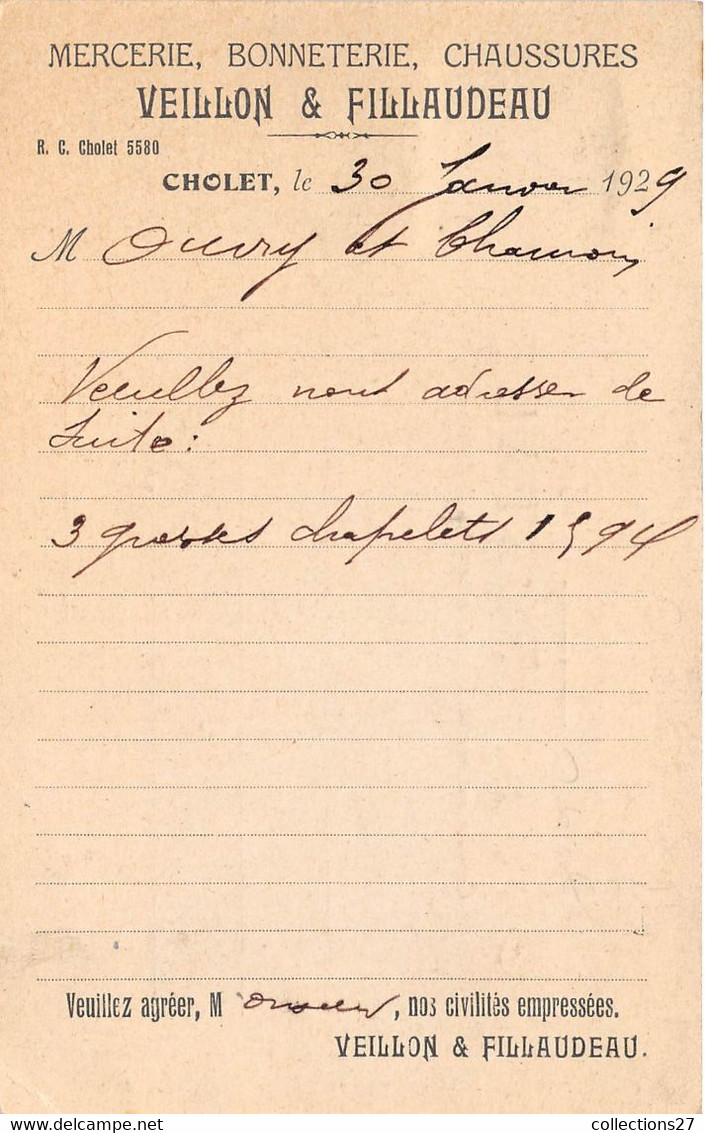 MERCERIE, BONNETERIE, CHAUSSURES
VEILLON & FILLAUDEAU
R. C. Cholet 5580
CHOLET, le 30 Janvier 1929
M Ouvry et
Veuillez nous adresser de
suite :
3 grosses chapelets 1594
Veuillez agréer, Monsieur, nos civilités empressées.
VEILLON & FILLAUDEAU.
collections27